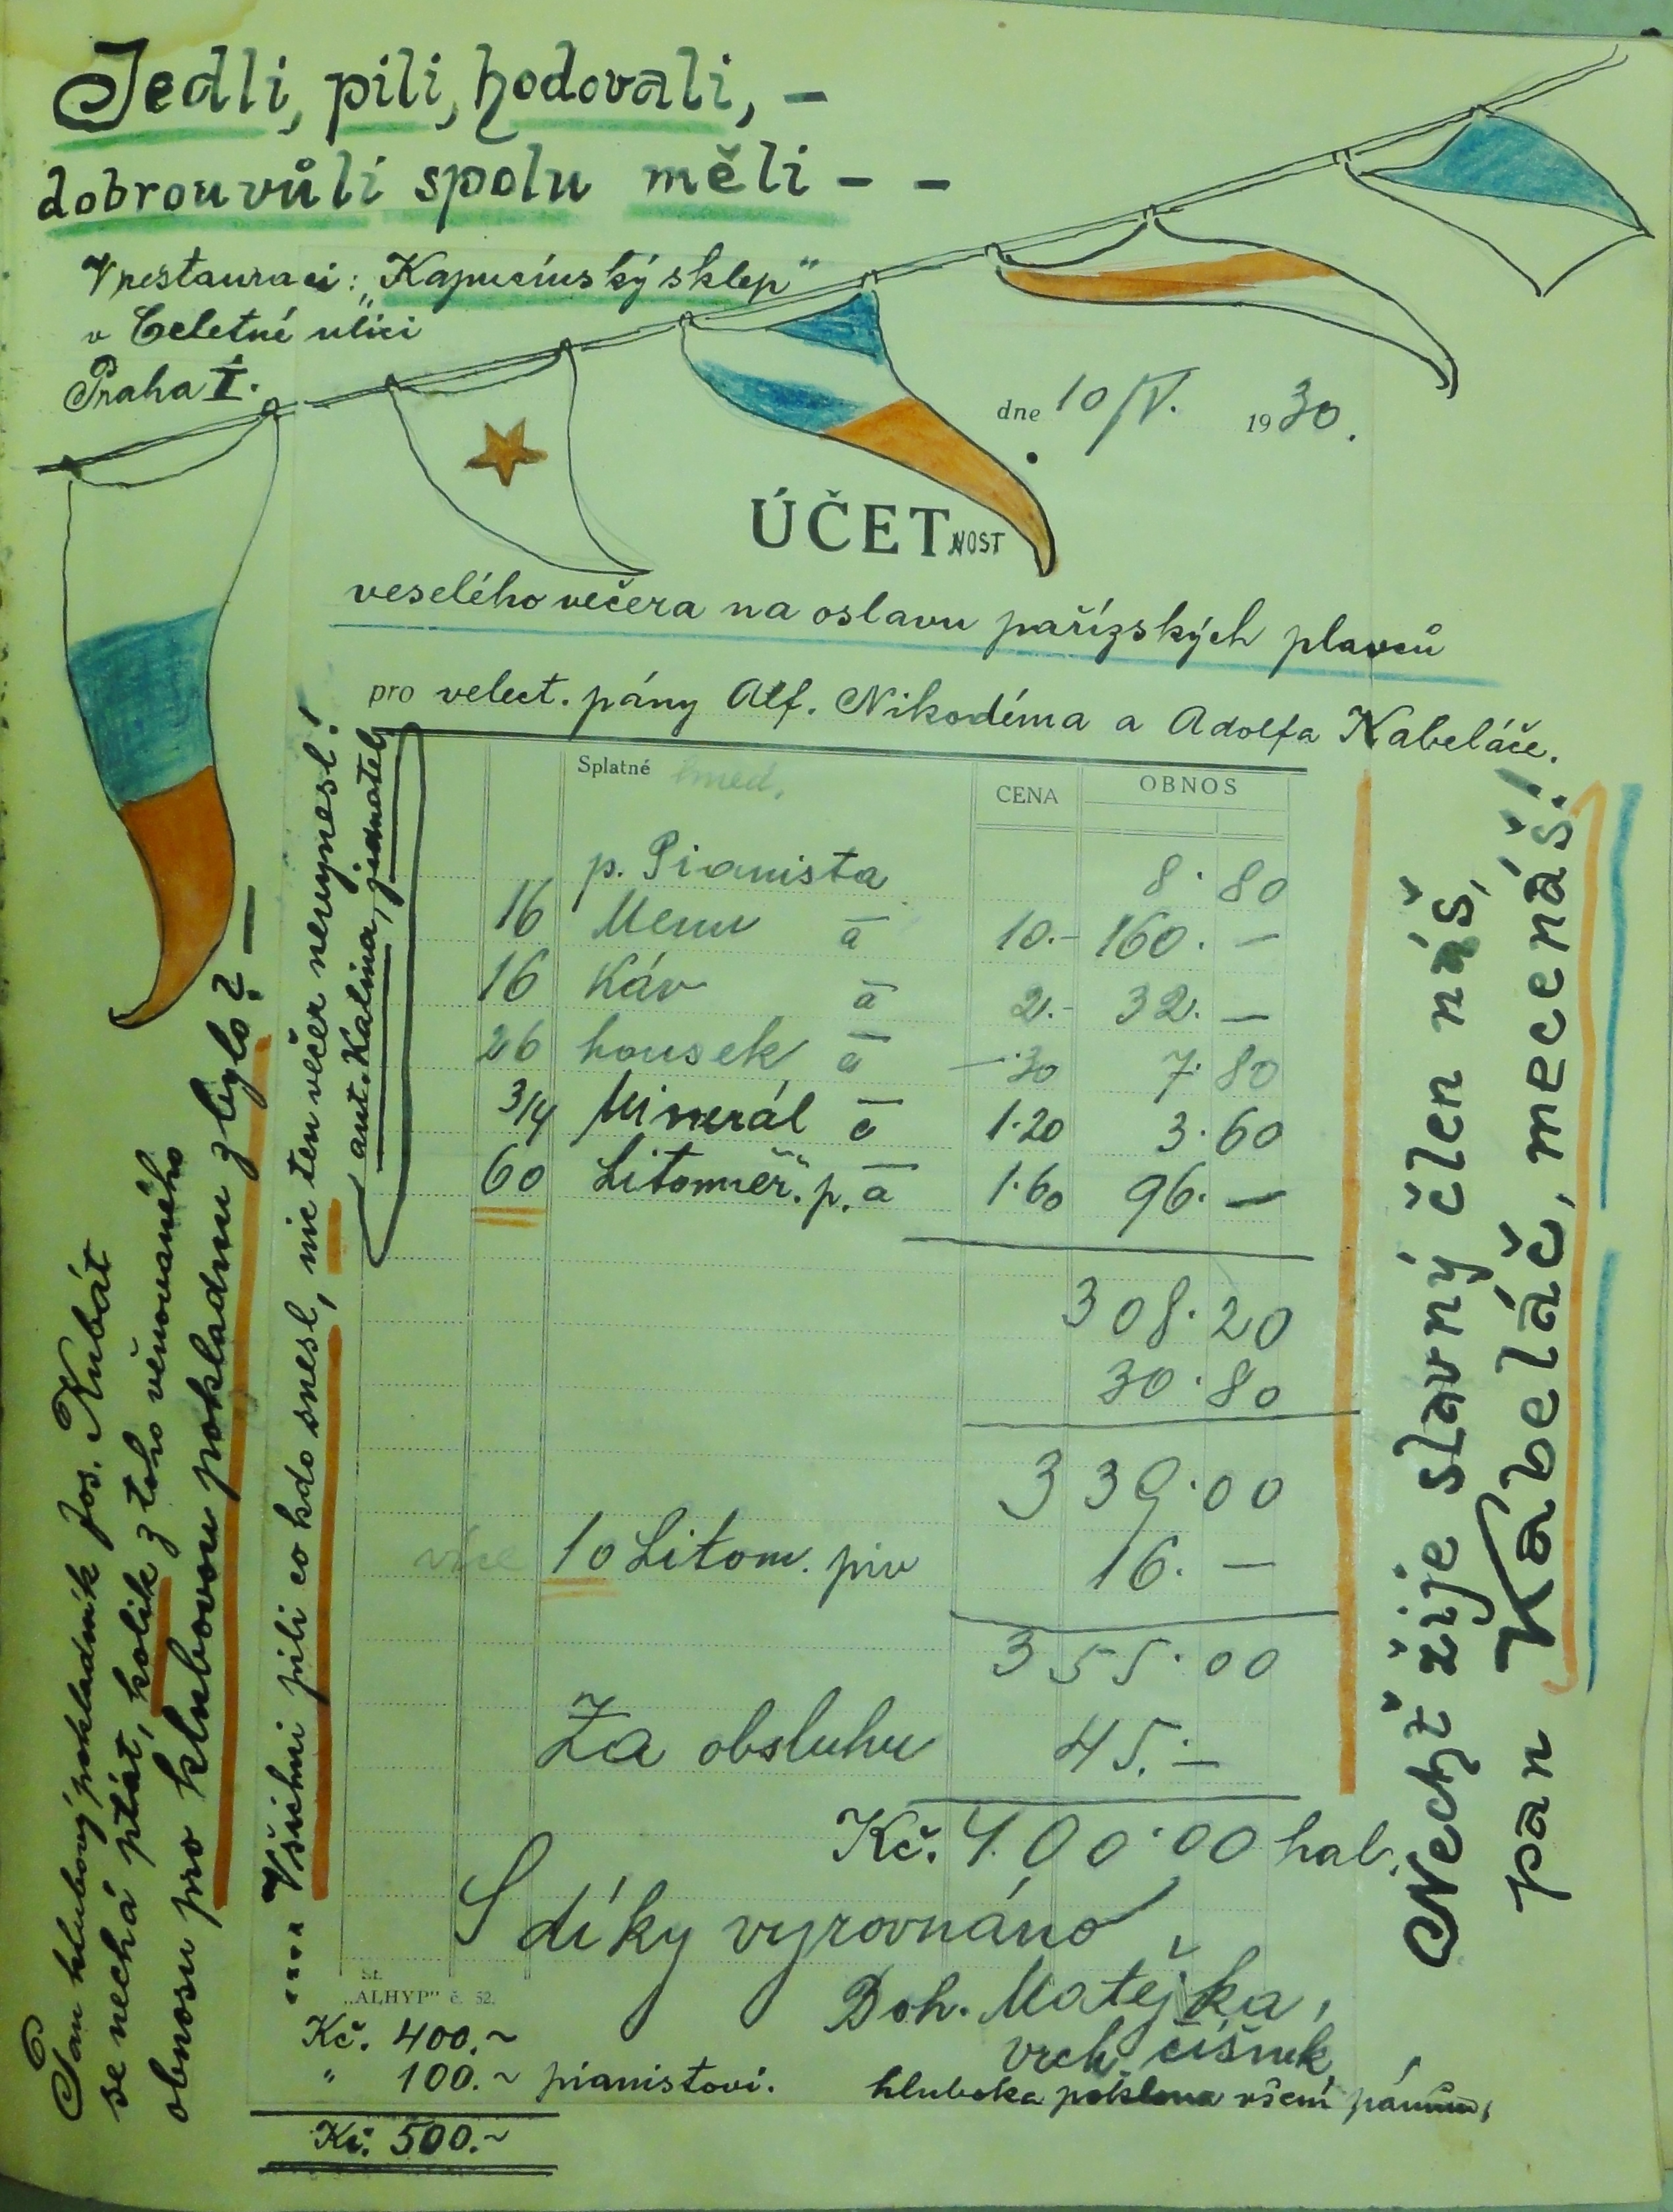 Jedli, pili, hodovali, –
dobrou vůli spolu měli – –
V restauraci: „Kapucínský sklep"
v Celetné ulici
Praha I.
dne 10/IV. 1930.
ÚČETNOST
veselého večera na oslavu pařízských plavců
pro velect. pány Alf. Nikodéma a Adolfa Kabeláče.
Splatné ihned. CENA OBNOS
p. Pianista 8·80
16 Menu à 10.- 160.—
16 Káv à 2.- 32.—
26 housek à —·30 7·80
3/4 Minerál à 1·20 3·60
60 Litoměř. p. à 1·60 96.—
308·20
30·80
339·00
více 10 Litom. piv 16.—
355·00
Za obsluhu 45.—
Kč. 400·00 hal.
S díky vyrovnáno
Doh. Matějka,
vrch. číšník
hluboká poklona všem pánům,
„ALHYP" č. 52.
Kč. 400.~
" 100.~ pianistovi.
Kč. 500.~
Pan klubový pokladník Jos. Kubát
se nechá ptát, kolik z toho věnovaného
obnosu pro klubovou pokladnu zbylo? —
.... Všichni pili co kdo snesl, nic ten večer nevynesl!
ant. Kalina, jednatel
Nechť žije slavný člen náš,
pan Kabeláč, mecenáš!